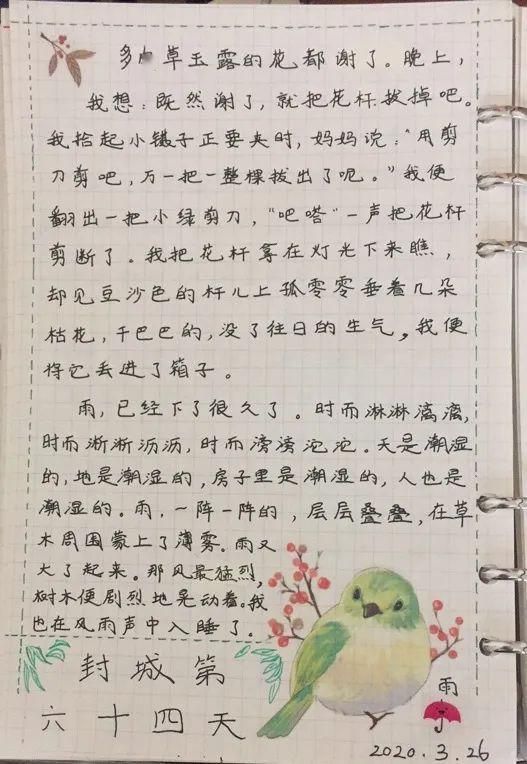 多肉草玉露的花都谢了。晚上，
我想：既然谢了，就把花杆拔掉吧。
我拾起小镊子正要夹时，妈妈说："用剪
刀剪吧，万一把一整棵拔出了呢。"我便
翻出一把小绿剪刀，"吧嗒"一声把花杆
剪断了。我把花杆拿在灯光下来瞧，
却见豆沙色的杆儿上孤零零垂着几朵
枯花，干巴巴的，没了往日的生气，我便
将它丢进了箱子。
雨，已经下了很久了。时而淋淋漓漓，
时而淅淅沥沥，时而滂滂沱沱。天是潮湿
的，地是潮湿的，房子里是潮湿的，人也是
潮湿的。雨，一阵一阵的，层层叠叠，在草
木周围蒙上了薄雾。雨又
大了起来。那风最猛烈，
树木便剧烈地晃动着。我
也在风雨声中入睡了。
封城第
六十四天
雨
2020.3.26